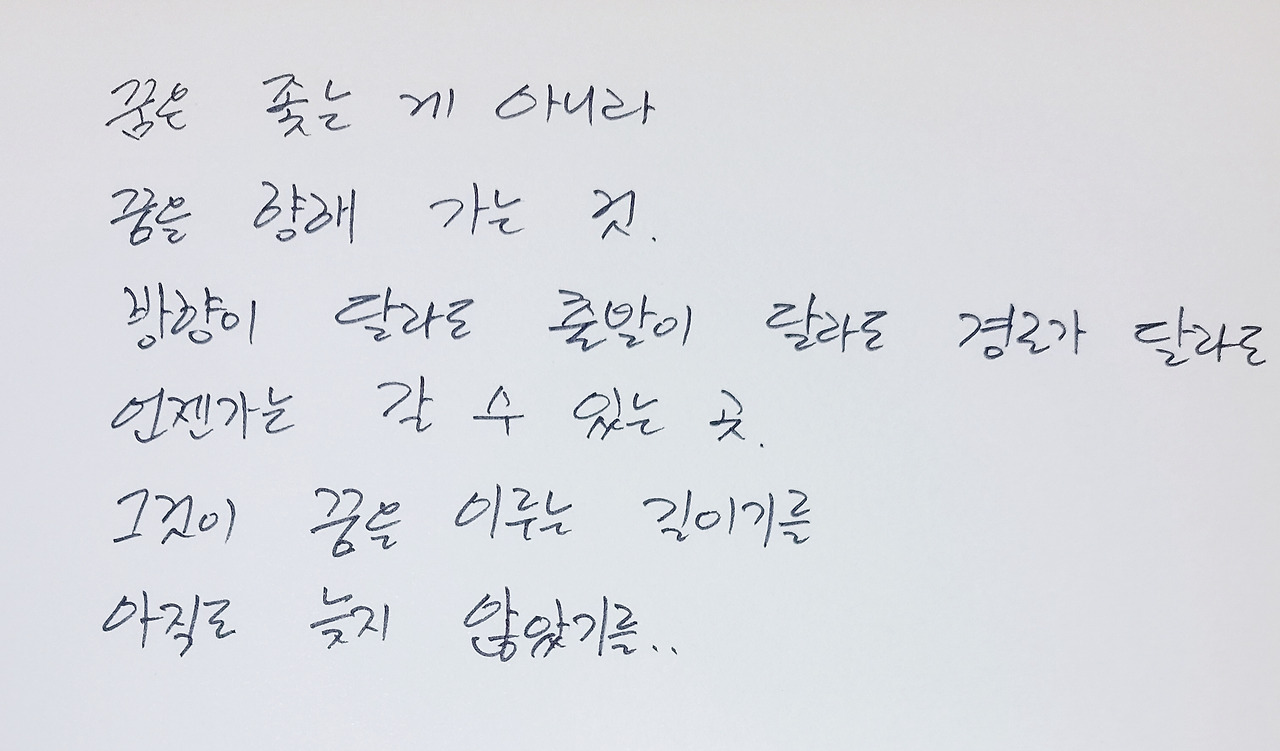 꿈은 좇는 게 아니라
꿈을 향해 가는 것.
방향이 달라도 출발이 달라도 경로가 달라도
언젠가는 갈 수 있는 곳.
그것이 꿈을 이루는 길이기를
아직도 늦지 않았기를..